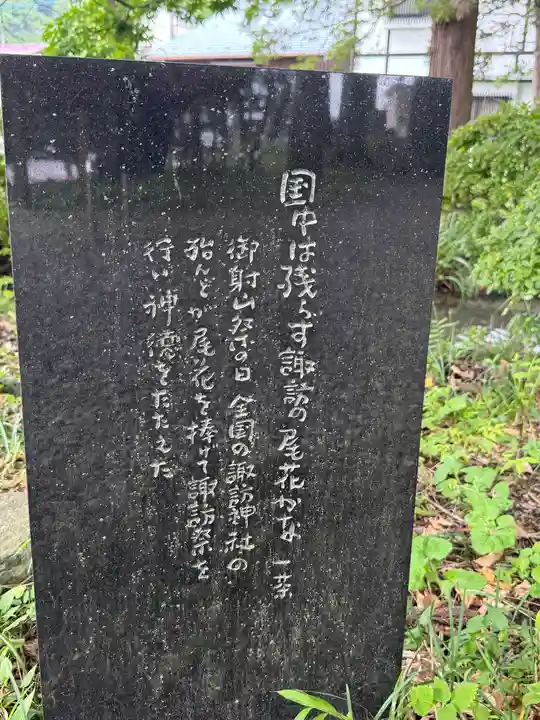 国中は残らず諏訪の尾花かな 一茶
御射山祭の日 全国の諏訪神社の
殆んどが尾花を捧げて諏訪祭を
行い神徳をたたえた